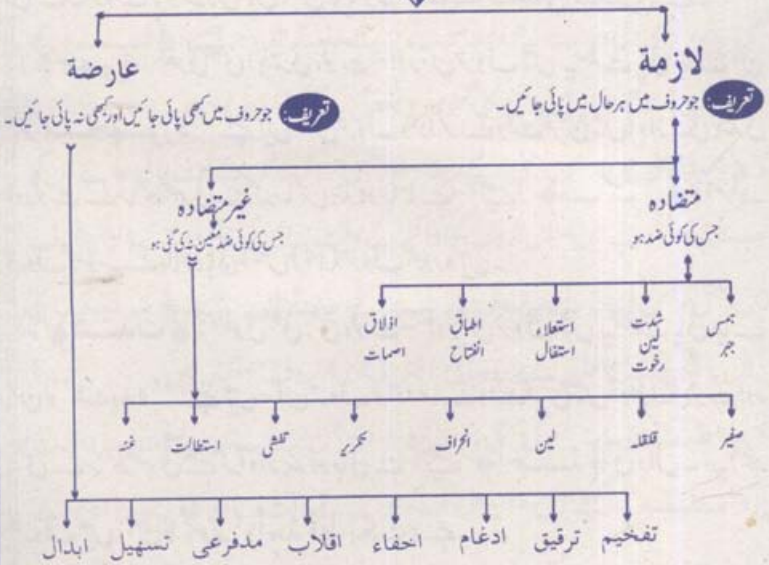 لازمة
عارضة
تعریف: جو حروف میں ہر حال میں پائی جائیں۔
تعریف: جو حروف میں کبھی پائی جائیں اور کبھی نہ پائی جائیں۔
متضادہ
غیر متضادہ
جس کی کوئی ضد ہو
جس کی کوئی ضد معین نہ کی گئی ہو
ہمس
جہر
شدت
لین
رخوت
استعلاء
استفال
اطباق
انفتاح
اذلاق
اصمات
صفیر
قلقلہ
لین
انحراف
تکریر
تفشی
استطالت
غنہ
تفخیم
ترقیق
ادغام
اخفاء
اقلاب
مدفرعی
تسهیل
ابدال